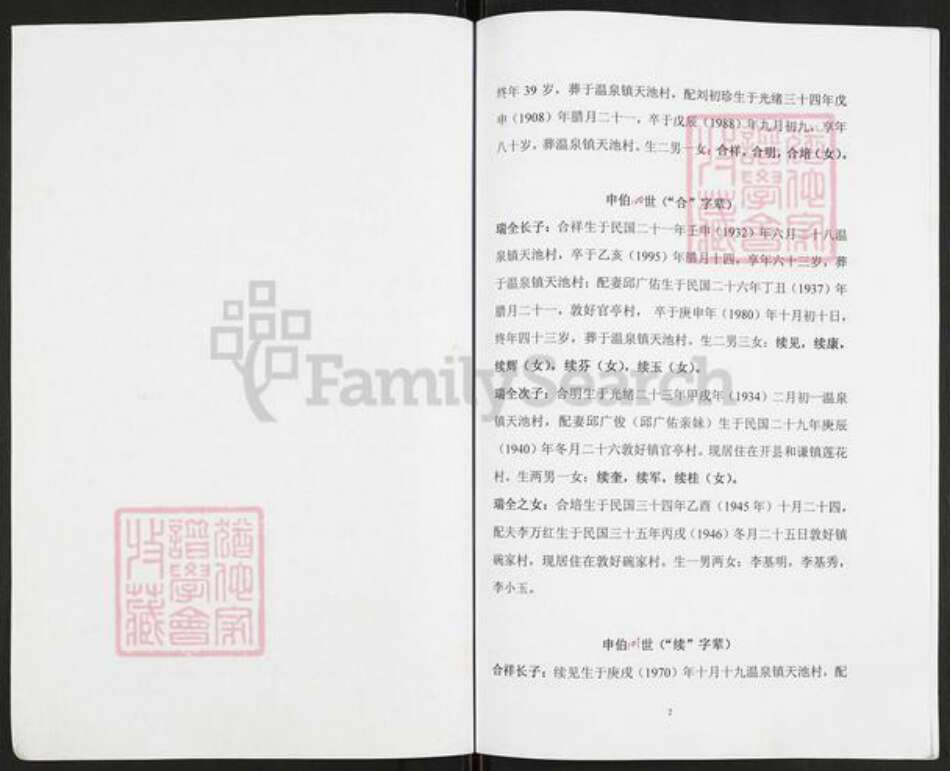 终年 39 岁，葬于温泉镇天池村。配刘初珍生于光绪三十四年戊
申（1908）年腊月二十一，卒于戊辰（1988）年九月初九，享年
八十岁，葬温泉镇天池村。生二男一女：合祥，合明，合培（女）。
申伯 世（“合”字辈）
瑞全长子：合祥生于民国二十一年壬申（1932）年六月二十八温
泉镇天池村，卒于乙亥（1995）年腊月十四，享年六十三岁，葬
于温泉镇天池村；配妻邱广佑生于民国二十六年丁丑（1937）年
腊月二十一，敦好官亭村， 卒于庚申年（1980）年十月初十日，
终年四十三岁，葬于温泉镇天池村。生二男三女：续见，续康，
续辉（女），续芬（女），续玉（女）。
瑞全次子：合明生于光绪二十三年甲戌年（1934）二月初一温泉
镇天池村，配妻邱广俊（邱广佑亲妹）生于民国二十九年庚辰
（1940）年冬月二十六敦好镇官亭村。现居住在开县和谦镇莲花
村。生两男一女：续奎，续军，续桂（女）。
瑞全之女：合培生于民国三十四年乙酉（1945 年）十月二十四，
配夫李万红生于民国三十五年丙戌（1946）冬月二十五日敦好镇
碗家村，现居住在敦好碗家村。生一男两女：李基明，李基秀，
李小玉。
申伯 世（“续”字辈）
合祥长子：续见生于庚戌（1970）年十月十九温泉镇天池村，配
7
FamilySearch